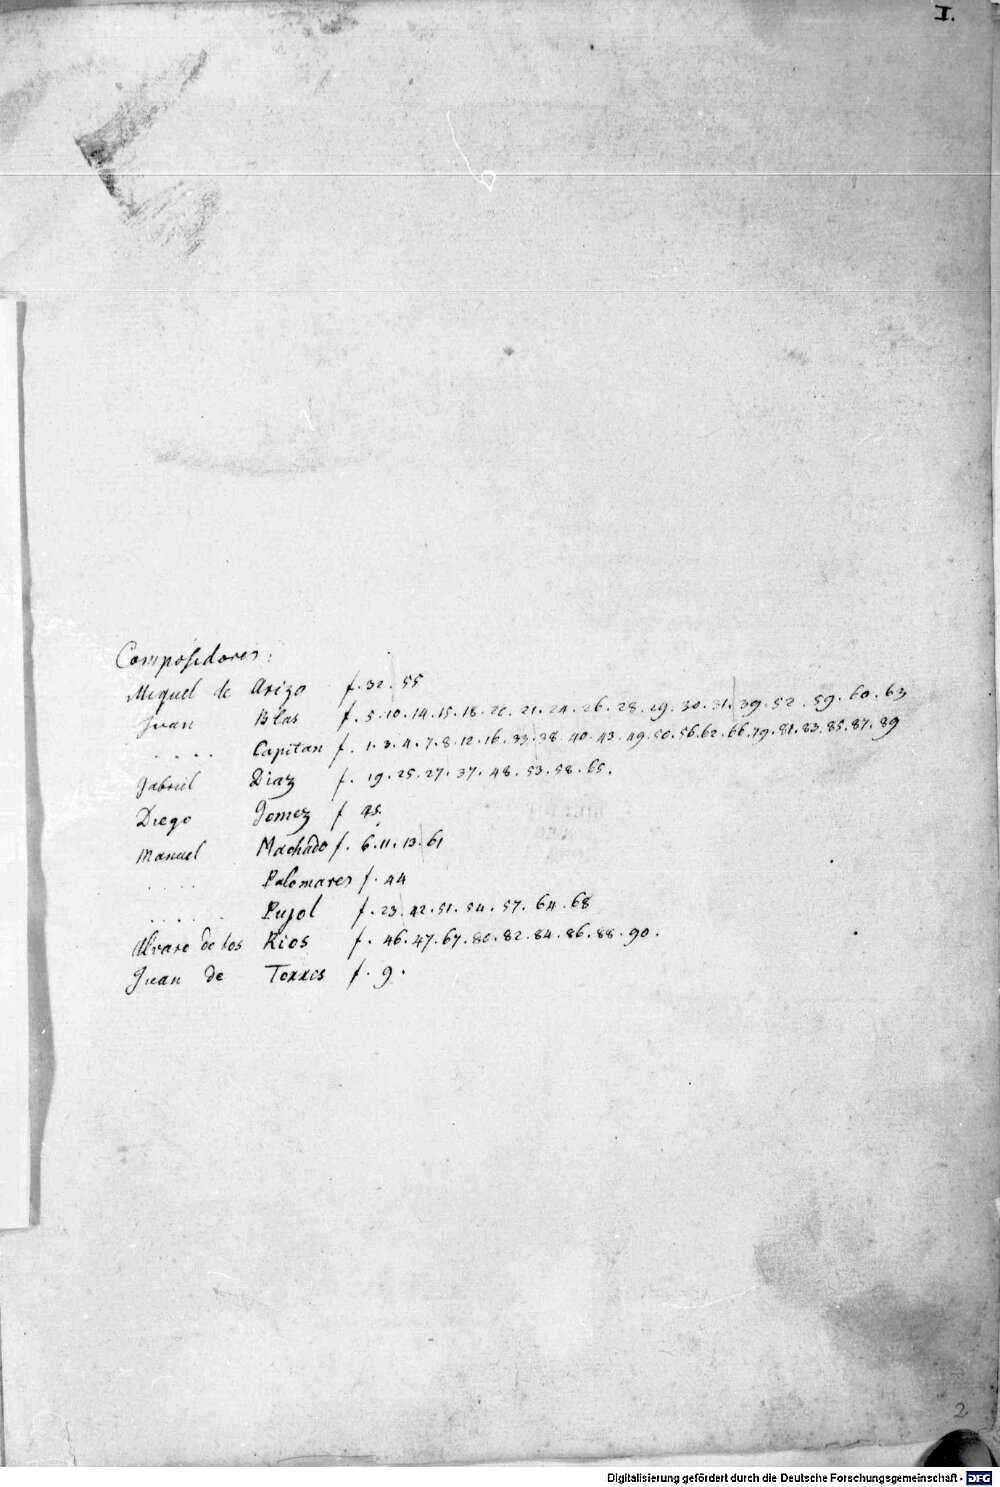 I.
Composidores:
Miguel de Arizo f. 32. 55
Juan Blas f. 5. 10. 14. 15. 18. 20. 21. 24. 26. 28. 29. 30. 31. 39. 52. 59. 60. 63
. . . . Capitan f. 1. 3. 4. 7. 8. 12. 16. 33. 38. 40. 43. 49. 50. 56. 62. 66. 79. 81. 83. 85. 87. 89
Gabriel Diaz f. 19. 25. 27. 37. 48. 53. 58. 65.
Diego Gomez f 45.
Manuel Machado f. 6. 11. 13. 61
. . . . Palomares f. 44
. . . . . Pujol f. 23. 42. 51. 54. 57. 64. 68
Alvaro de los Rios f. 46. 47. 67. 80. 82. 84. 86. 88. 90.
Juan de Torres f. 9.
2
Digitalisierung gefördert durch die Deutsche Forschungsgemeinschaft - DFG